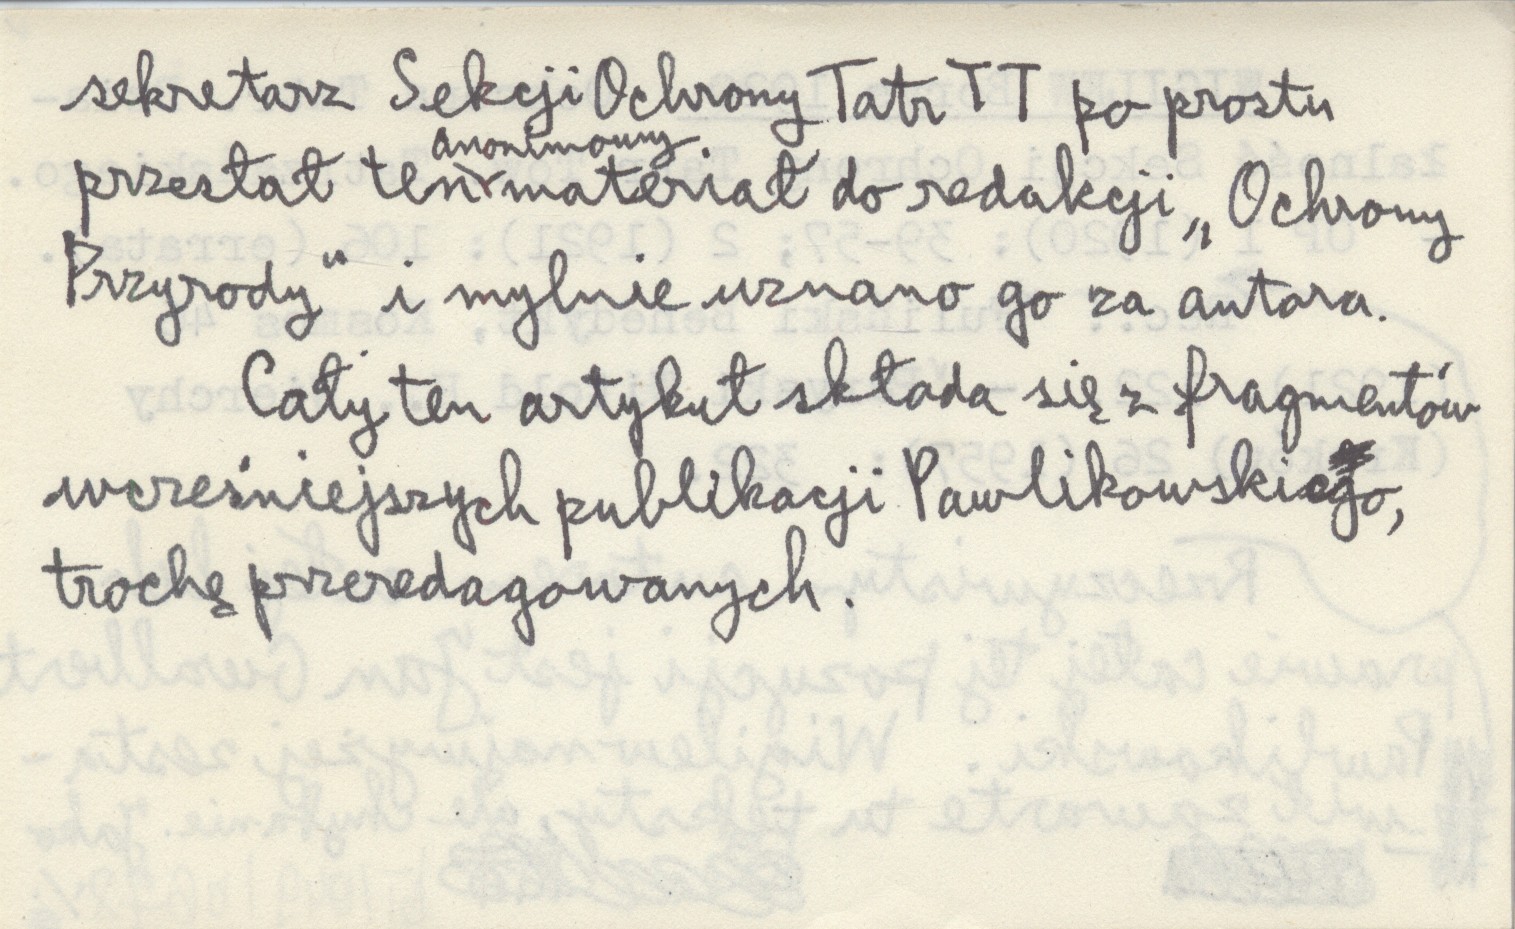 sekretarz Sekcji Ochrony Tatr TT po prostu
przesłał ten anonimowy materiał do redakcji „Ochrony
Przyrody" i mylnie uznano go za autora.
Cały ten artykuł składa się z fragmentów
wcześniejszych publikacji Pawlikowskiego,
trochę przeredagowanych.